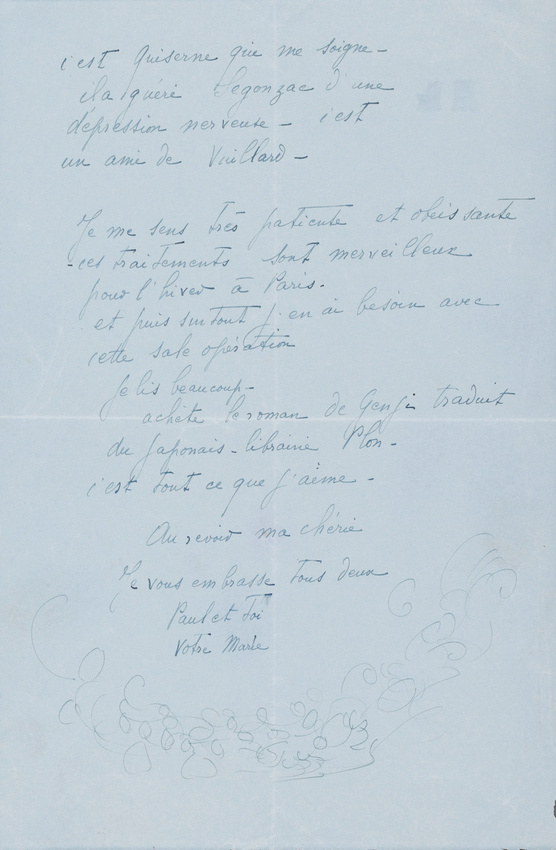 c'est Guiserne qui me soigne –
il a guéri Segonzac d'une
dépression nerveuse – c'est
un ami de Vuillard –
Je me sens très patiente et obeissante
- ces traitements sont merveilleux
pour l'hiver à Paris.
et puis surtout j'en ai besoin avec
cette sale opération
Je lis beaucoup –
achète le roman de Genji traduit
du Japonais – librairie Plon –
c'est tout ce que j'aime –
Au revoir ma chérie
Je vous embrasse tous deux
Paul et toi
Votre Marie